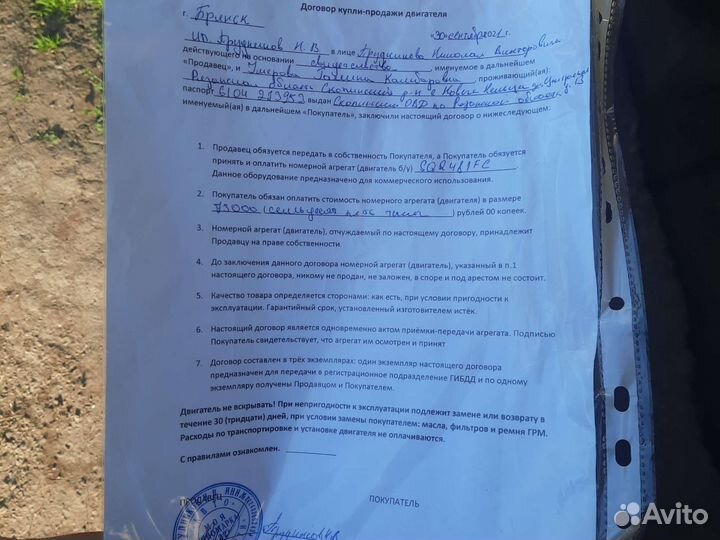 Договор купли-продажи двигателя
г. Брянск
«30» сентября 2021 г.
ИП. Грудненков Н. В в лице Грудненкова Николая Викторовича
действующего на основании свидетельство, именуемое в дальнейшем
«Продавец», и Умерова Галина Камбаровна, проживающий(ая):
Рязанская область Скопинский р-н с Новые
паспорт 6104 213953 выдан Скопинским ОВД по Рязанской области
именуемый(ая) в дальнейшем «Покупатель», заключили настоящий договор о нижеследующем:
1. Продавец обязуется передать в собственность Покупателя, а Покупатель обязуется
принять и оплатить номерной агрегат (двигатель б/у) SQR481FC.
Данное оборудование предназначено для коммерческого использования.
2. Покупатель обязан оплатить стоимость номерного агрегата (двигателя) в размере
75000 (семьдесят пять тысяч) рублей 00 копеек.
3. Номерной агрегат (двигатель), отчуждаемый по настоящему договору, принадлежит
Продавцу на праве собственности.
4. До заключения данного договора номерной агрегат (двигатель), указанный в п.1
настоящего договора, никому не продан, не заложен, в споре и под арестом не состоит.
5. Качество товара определяется сторонами: как есть, при условии пригодности к
эксплуатации. Гарантийный срок, установленный изготовителем истёк.
6. Настоящий договор является одновременно актом приёмки-передачи агрегата. Подписью
Покупатель свидетельствует, что агрегат им осмотрен и принят
7. Договор составлен в трёх экземплярах: один экземпляр настоящего договора
предназначен для передачи в регистрационное подразделение ГИБДД и по одному
экземпляру получены Продавцом и Покупателем.
Двигатель не вскрывать! При непригодности к эксплуатации подлежит замене или возврату в
течение 30 (тридцати) дней, при условии замены покупателем: масла, фильтров и ремня ГРМ.
Расходы по транспортировке и установке двигателя не оплачиваются.
С правилами ознакомлен. ________
ПРОДАВЕЦ
ПОКУПАТЕЛЬ
Грудненков Н.В
Avito